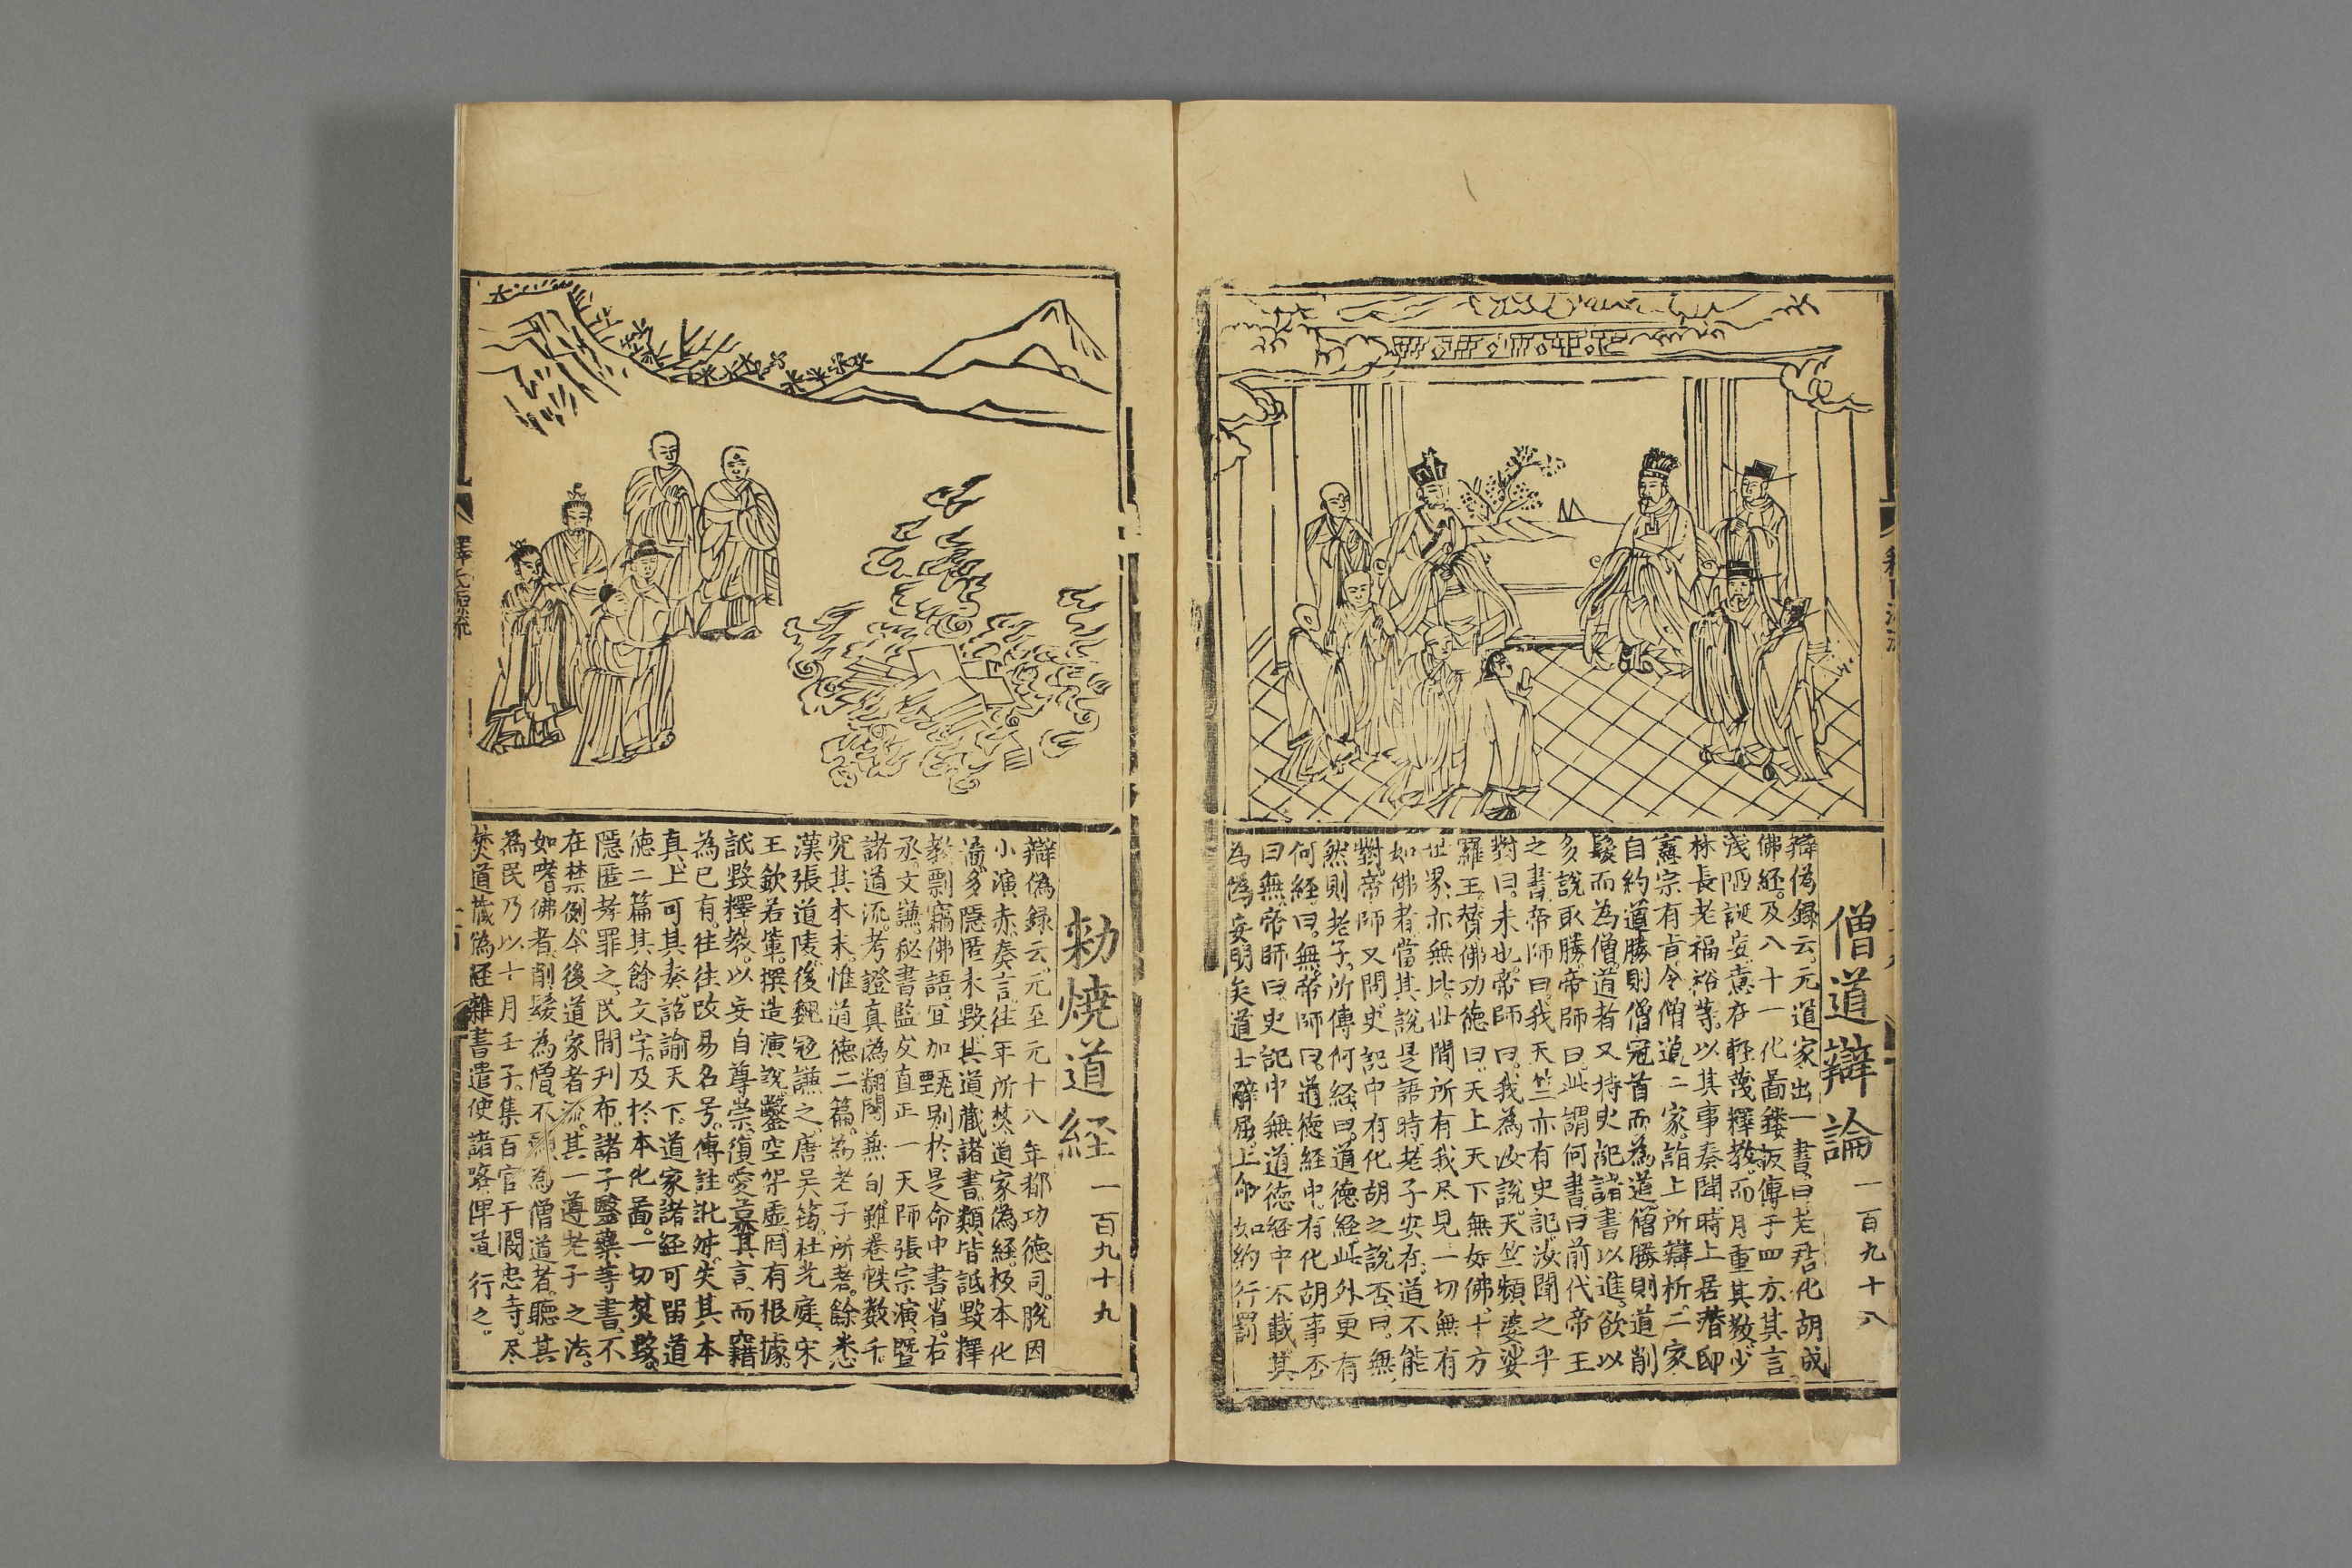 僧道辯論 一百九十八
辯偽録云。元道家出一書。曰老君化胡成
佛經。及八十一化啚鏤板傳于四方。其言
淺陋誕妄。意在輕蔑釋教。而自重其教。少
林長老福裕等。以其事奏聞。時上居潛邸
憲宗有旨。令僧道二家。詣上所辯析。二家
自約道勝則僧冠首而為道。僧勝則道削
髮而為僧。道者又持史記諸書以進。欲以
多說取勝。帝師曰。此謂何書。曰前代帝王
之書。帝師曰。我天竺亦有史記。汝聞之乎
對曰。未也。帝師曰。我為汝說。天竺頻婆娑
羅王。賛佛功德曰。天上天下無如佛。十方
世界亦無比。世間所有我尽見一切無有
如佛者。當其說是語時。老子安在。道不能
對。帝師又問。史記中有化胡之說否。曰。無。
然則老子所傳何經。曰。道德經。此外更有
何經。曰。無。帝師曰。道德經中。有化胡事否
曰無。帝師曰。史記中無。道德經中不載。其
為偽妄明矣。道士辭屈。上命如約行罰
勅燒道経 一百九十九
辯偽録云。元至元十八年。都功德司。脫因
小演赤。奏言。往年所焚道家偽經。板本化
啚。多隱匿未毀。其道藏諸書。類皆詆毀釋
教。剽竊佛語。宜加甄别。於是命中書省。右
丞。文謙。秘書監友直。正一天師張宗演。暨
諸道流。考證真偽。翻閱兼旬。雖卷帙数千。
究其本末。惟道德二篇。為老子所著。餘悉
漢張道陵。後魏冦謙之。唐吴筠。杜光庭。宋
王欽若軰。撰造演說。鑿空架虚。罔有根據。
詆毀釋教。以妄自尊崇。復愛慕其言。而竊
為已有。往往改易名号。傳註訛舛。失其本
真。上可其奏。詔諭天下。道家諸經可留道
德二篇。其餘文字。及於本化啚。一切焚毀。
隱匿者罪之。民間刋布。諸子醫藥等書。不
在禁例。今後道家者流。其一遵老子之法。
如嗜佛者。削髮為僧。不願為僧道者。聽其
為民。乃以十月壬子。集百官于閔忠寺。尽
焚道藏偽経雜書。遣使諸路。俾道行之。
釋氏源流